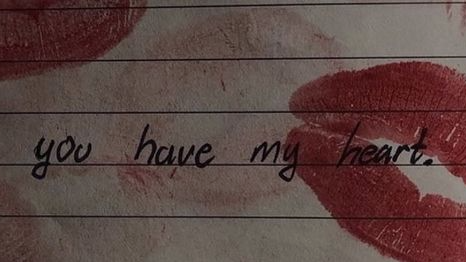 you have my heart.